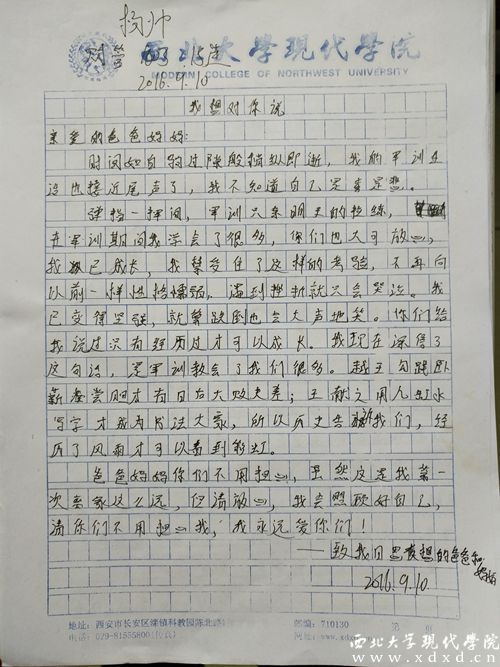 杨帅
西北大学现代学院
MODERN COLLEGE OF NORTHWEST UNIVERSITY
2016.9.10
我想对你说
亲爱的爸爸妈妈:
时间如白驹过隙般横纵即逝,我的军训生
活也接近尾声了,我不知道自己是喜是悲。
弹指一挥间,军训只余明天的拉练,
在军训期间我学会了很多,你们也大可放心,
我已成长,我禁受住了这样的考验,不再向
以前一样性格懦弱,遇到挫折就只会哭泣。我
已变得坚强,就算跌倒也会大声地笑。你们给
我说过只有经历过才可以成长。我现在深信了
这句话,是军训教会了我们很多。越王勾践卧
薪尝胆才有日后大败夫差;王献之用八缸水
写字才成为书法大家,所以历史告诉我们,经
历了风雨才可以看到彩虹。
爸爸妈妈你们不用担心,虽然这是我第一
次离家这么远,但请放心,我会照顾好自己,
请你们不用担心我,我永远爱你们!
——致我日思夜想的爸爸和妈妈
2016.9.10
地址:西安市长安区滦镇科教园陈北路
邮编:710130
电话:029-81555800
西北大学现代学院
www.xdxd.cn